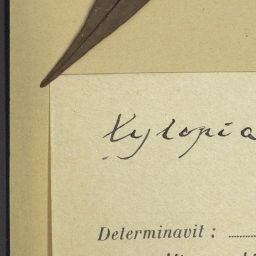 Xylopia
Determinavit :